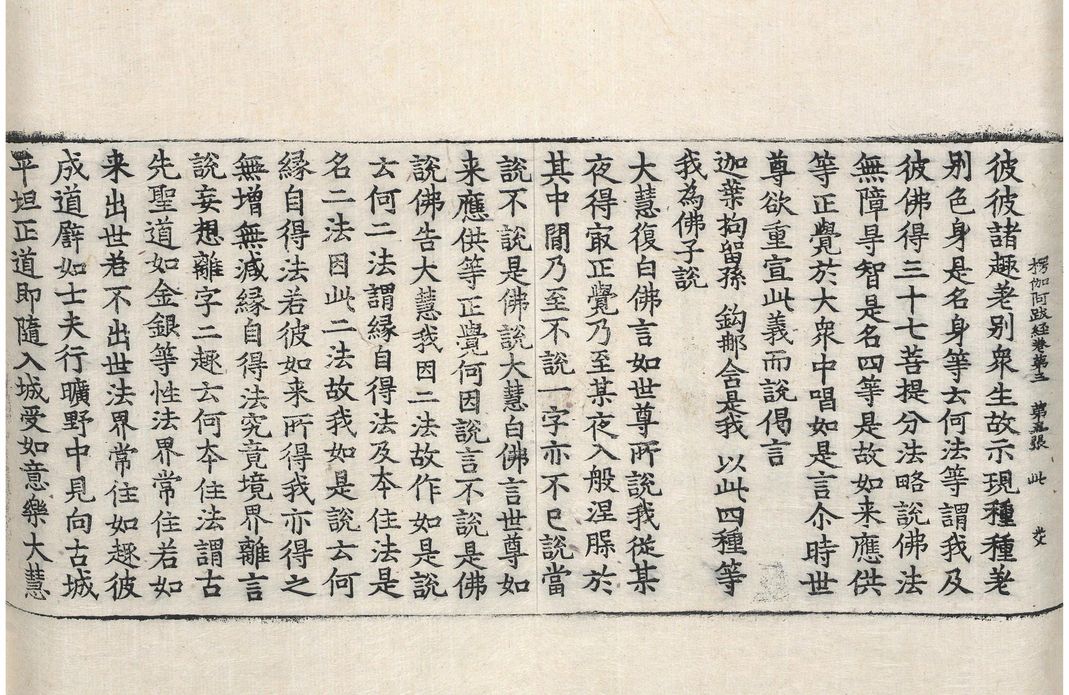 楞伽阿跋経巻第三 第五張 此
彼彼諸趣差別衆生故示現種種差
別色身是名身等云何法等謂我及
彼佛得三十七菩提分法略說佛法
無障㝵智是名四等是故如来應供
等正覺於大衆中唱如是言尒時世
尊欲重宣此義而說偈言
迦葉拘留孫 鈎䣯含是我 以此四種等
我為佛子說
大慧復白佛言如世尊所說我從某
夜得㝡正覺乃至某夜入般涅槃於
其中間乃至不說一字亦不已說當
說不說是佛說大慧白佛言世尊如
来應供等正覺何因說言不說是佛
說佛告大慧我因二法故作如是說
云何二法謂縁自得法及夲住法是
名二法因此二法故我如是說云何
縁自得法若彼如来所得我亦得之
無增無減縁自得法究竟境界離言
說妄想離字二趣云何夲住法謂古
先聖道如金銀等性法界常住若如
来出世若不出世法界常住如趣彼
成道譬如士夫行曠野中見向古城
平坦正道即隨入城受如意樂大慧